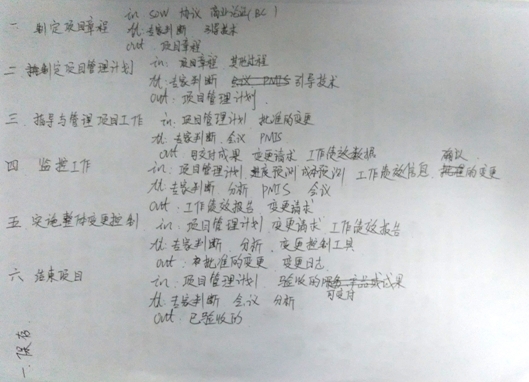 in SOW 协议 商业论证(BC)
一 制定项目章程 tt 专家判断 引导技术
out 项目章程
二 制定项目管理计划 in 项目章程 其他过程
tt 专家判断 引导技术
out 项目管理计划
三 指导与管理项目工作 in 项目管理计划 批准的变更
tt 专家判断 会议 PMIS
out 可交付成果 变更请求 工作绩效数据
四 监控工作 in 项目管理计划 进度预测 成本预测 工作绩效信息 确认的变更
tt 专家判断 分析 PMIS 会议
out 工作绩效报告 变更请求
五 实施整体变更控制 in 项目管理计划 变更请求 工作绩效报告
tt 专家判断 分析 变更控制工具
out 批准的变更 变更日志
六 结束项目 in 项目管理计划 验收的可交付成果
tt 专家判断 会议 分析
out 已验收的